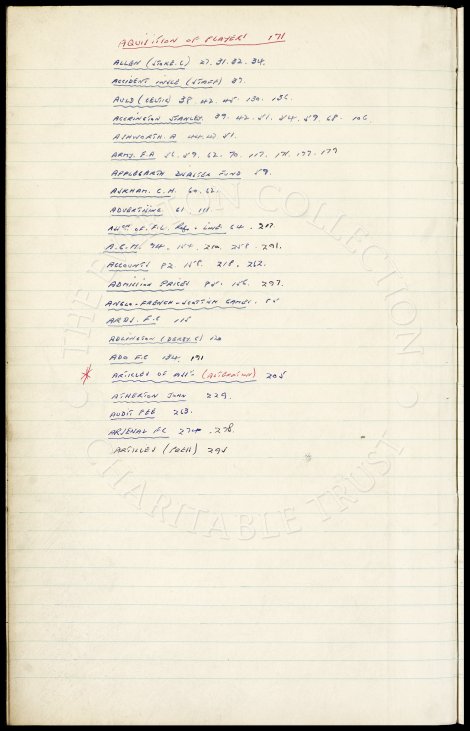 AQUISITION OF PLAYERS 171
ALLEN (STOKE C) 27. 31. 32. 34.
ACCIDENT INSCE (STAFF) 37.
AULD (CELTIC) 38. 42. 45. 130. 136.
ACCRINGTON STANLEY. 39. 42. 51. 54. 59. 68. 106
ASHWORTH. A 44. 51.
ARMY. F.A 56. 59. 62. 70. 117. 177. 179
APPLEGARTH FUND 59.
ASKHAM. C.H. 60. 62.
ADVERTISING 61. 111.
OF. F.L. Refs + LINE 64.
A.G.M. 94. 154. 210. 258. 291.
ACCOUNTS P2 158. 218. 262.
ADMISSION PRICES 95. 156. 297.
ANGLO-FRENCH-SCOTTISH GAMES.
F.C 115
ADLINGTON (DERBY. C) 120
ADO F.C 134. 191
* ARTICLES OF ASS'N (ALTERATION) 205
ATHERTON JOHN 229.
AUDIT FEE 263.
ARSENAL FC 274. 278.
ARTICLES 295
THE COLLECTION
CHARITABLE TRUST